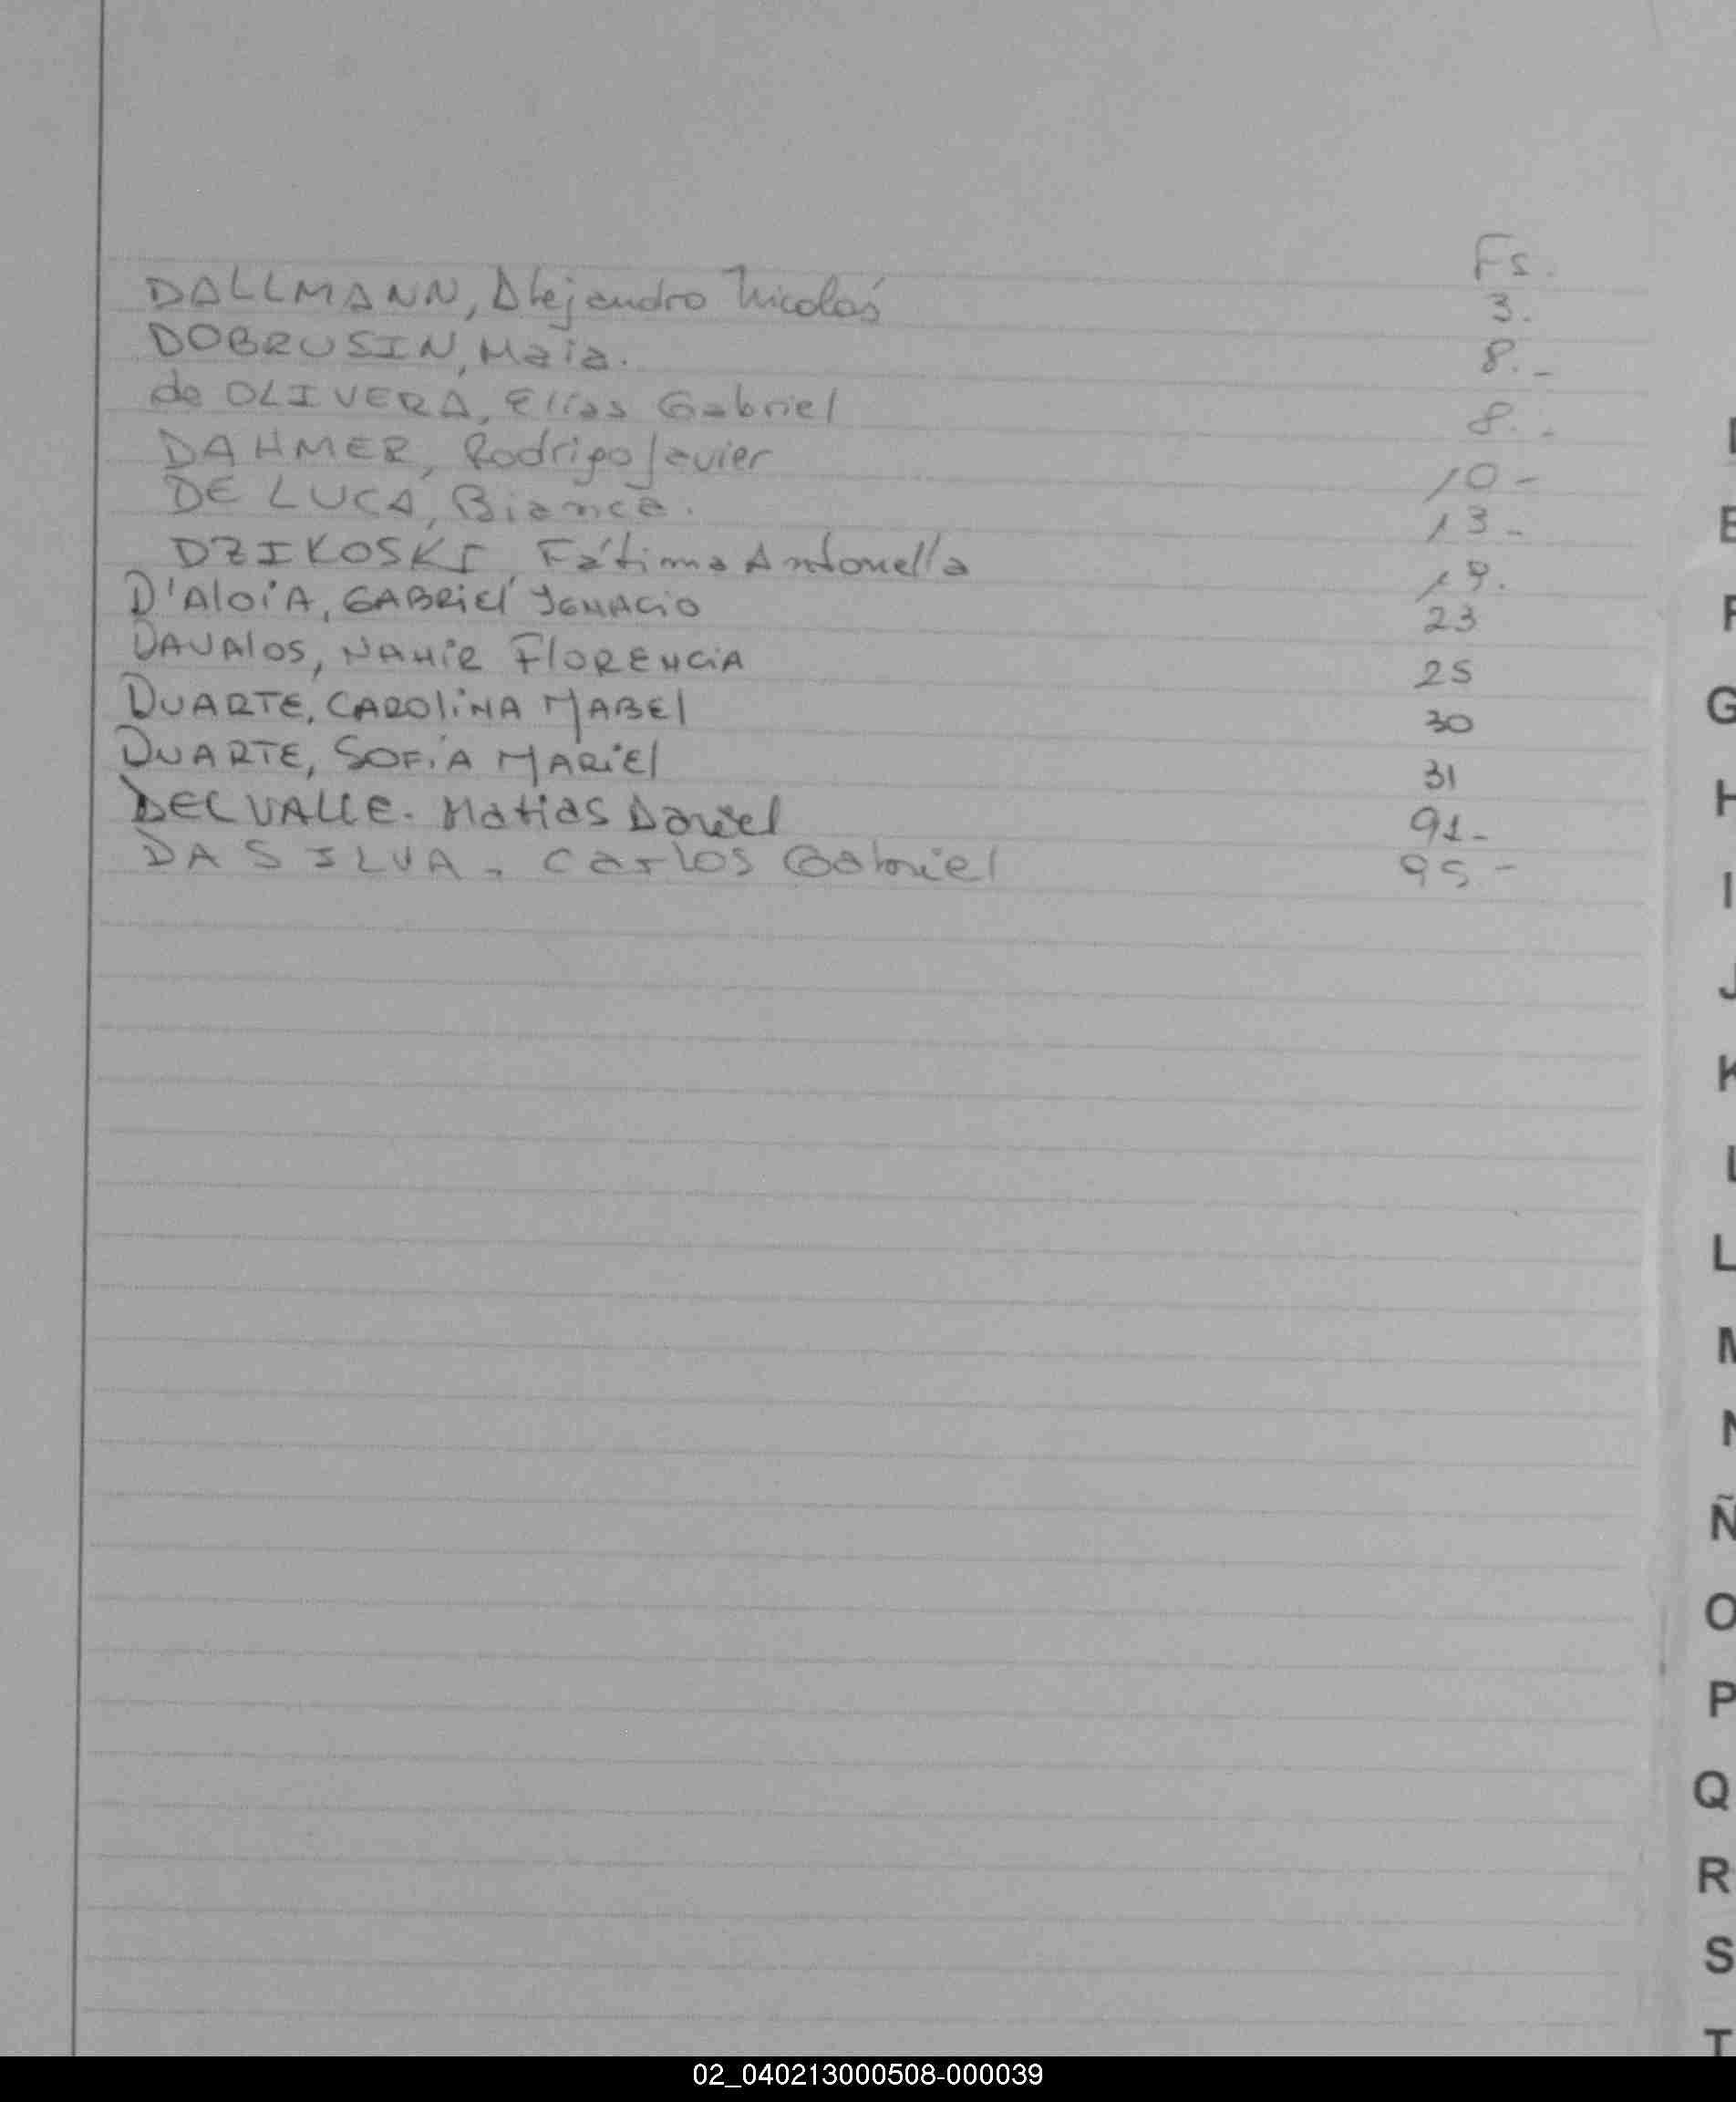 Fs.
DALLMANN, Alejandro Nicolás 3.
DOBRUSIN, Maia. 8.-
de OLIVERA, Elías Gabriel 8.-
DAHMER, Rodrigo Javier 10-
DE LUCA, Bianca. 13-
DZIKOSKI, Fátima Antonella 19.
D'AloiA, GABRiEl IGNACiO 23
DAVAlOS, NAHiR FlORENCiA 25
DUARTE, CAROliNA MABEl 30
DUARTE, SOFiA MARiEl 31
DELVALLE. Matias Daniel 91-
DA SILVA - Carlos Gabriel 95-
E
F
G
H
I
J
K
L
L
M
N
Ñ
O
P
Q
R
S
T
02_040213000508-000039